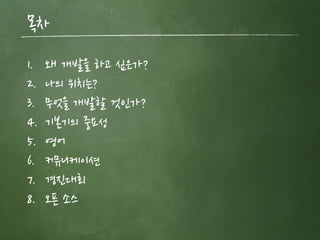 목차
1. 왜 개발을 하고 싶은가?
2. 나의 위치는?
3. 무엇을 개발할 것인가?
4. 기본기의 중요성
5. 영어
6. 커뮤니케이션
7. 경진대회
8. 오픈 소스